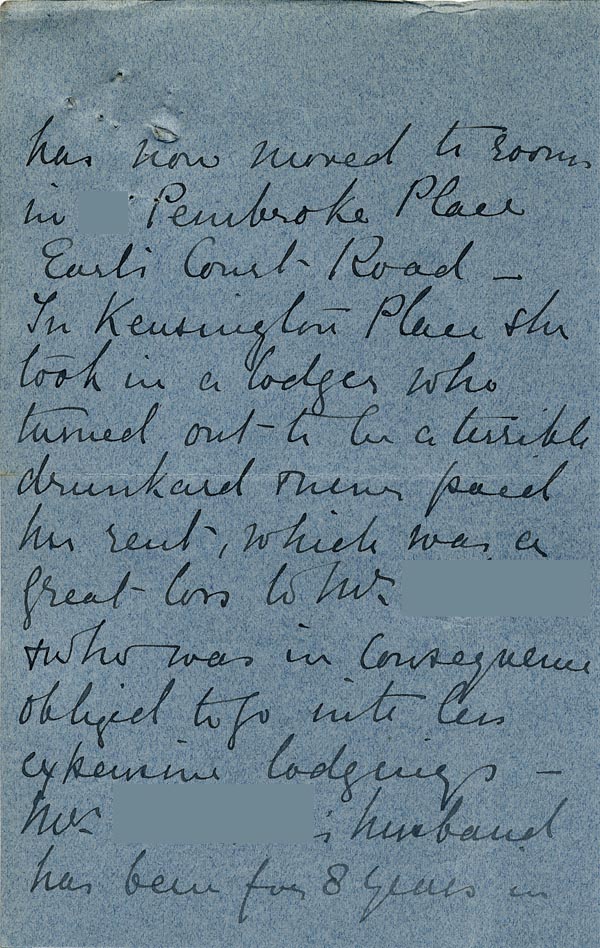 has now moved to rooms
in Pembroke Place
Earl's Court Road –
In Kensington Place she
took in a lodger who
turned out to be a terrible
drunkard & never paid
her rent, which was a
great loss to Mrs
& who was in consequence
obliged to go into less
expensive lodgings –
Mrs 's husband
has been for 8 years in